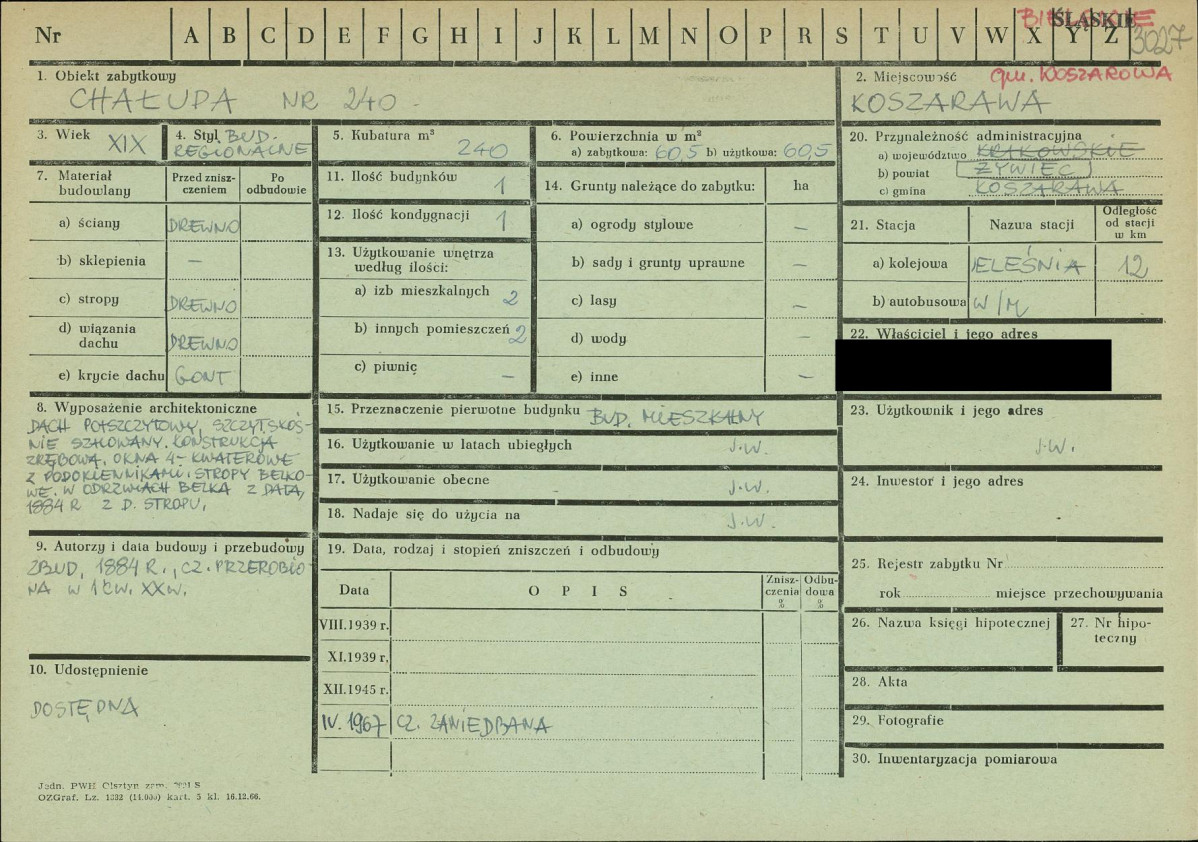 Nr A B C D E F G H I J K L M N O P R S T U V W X Y Z
BIELSKIE ŚLĄSKIE
3027
1. Obiekt zabytkowy
CHAŁUPA NR 240 -
2. Miejscowość gm. KOSZAROWA
KOSZARAWA
3. Wiek XIX
4. Styl BUD.
REGIONALNE
5. Kubatura m³
240
6. Powierzchnia w m²
a) zabytkowa: 60,5 b) użytkowa: 60,5
7. Materiał budowlany
Przed zniszczeniem
Po odbudowie
a) ściany DREWNO
b) sklepienia —
c) stropy DREWNO
d) wiązania dachu DREWNO
e) krycie dachu GONT
8. Wyposażenie architektoniczne
DACH PÓŁSZCZYTOWY, SZCZYT SKOŚ-
NIE SZALOWANY. KONSTRUKCJA
ZRĘBOWA. OKNA 4-KWATEROWE
Z PODOKIENNIKAMI. STROPY BELKO-
WE. W ODRZWIACH BELKA Z DATĄ,
1884 R Z D. STROPU.
9. Autorzy i data budowy i przebudowy
ZBUD, 1884 R., CZ. PRZEROBIO-
NA W 1 ĆW. XX W.
10. Udostępnienie
DOSTĘDNA
Jedn. PWH Olsztyn zam.
OZGraf. Lz. 1332 (14.000) kart. 5 kl. 16.12.66.
11. Ilość budynków 1
12. Ilość kondygnacji 1
13. Użytkowanie wnętrza
według ilości:
a) izb mieszkalnych 2
b) innych pomieszczeń 2
c) piwnic —
14. Grunty należące do zabytku: ha
a) ogrody stylowe —
b) sady i grunty uprawne —
c) lasy —
d) wody —
e) inne —
15. Przeznaczenie pierwotne budynku BUD. MIESZKALNY
16. Użytkowanie w latach ubiegłych J.W.
17. Użytkowanie obecne J.W.
18. Nadaje się do użycia na J.W.
19. Data, rodzaj i stopień zniszczeń i odbudowy
Data O P I S Zniszczenia % Odbudowa %
VIII.1939 r.
XI.1939 r.
XII.1945 r.
IV. 1967 CZ. ZANIEDBANA
20. Przynależność administracyjna
a) województwo KRAKOWSKIE
b) powiat ŻYWIEC
c) gmina KOSZARAWA
21. Stacja Nazwa stacji Odległość od stacji w km
a) kolejowa JELEŚNIA 12
b) autobusowa W/M
22. Właściciel i jego adres
23. Użytkownik i jego adres
J.W.
24. Inwestor i jego adres
25. Rejestr zabytku Nr
rok miejsce przechowywania
26. Nazwa księgi hipotecznej
27. Nr hipo-
teczny
28. Akta
29. Fotografie
30. Inwentaryzacja pomiarowa